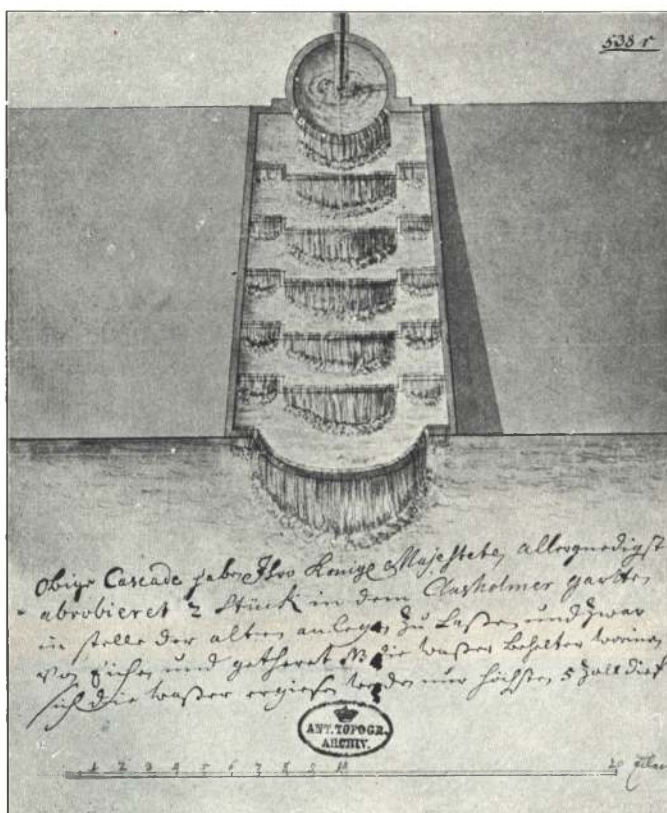 538 r
Obige Cascade haben Ihro Königl Majestete allergnedigst
abrobieret 2 Stück in dem Clausholmer gartten
in stelle der alten anlegen zu Laßen und zwar
von Eichen und getheret NB die waßer behelter worinen
sich die waßer ergießen werden nur höchsten 5 Zoll dieff
ANT. TOPOGR.
ARCHIV.
1 2 3 4 5 6 7 8 9 10 20